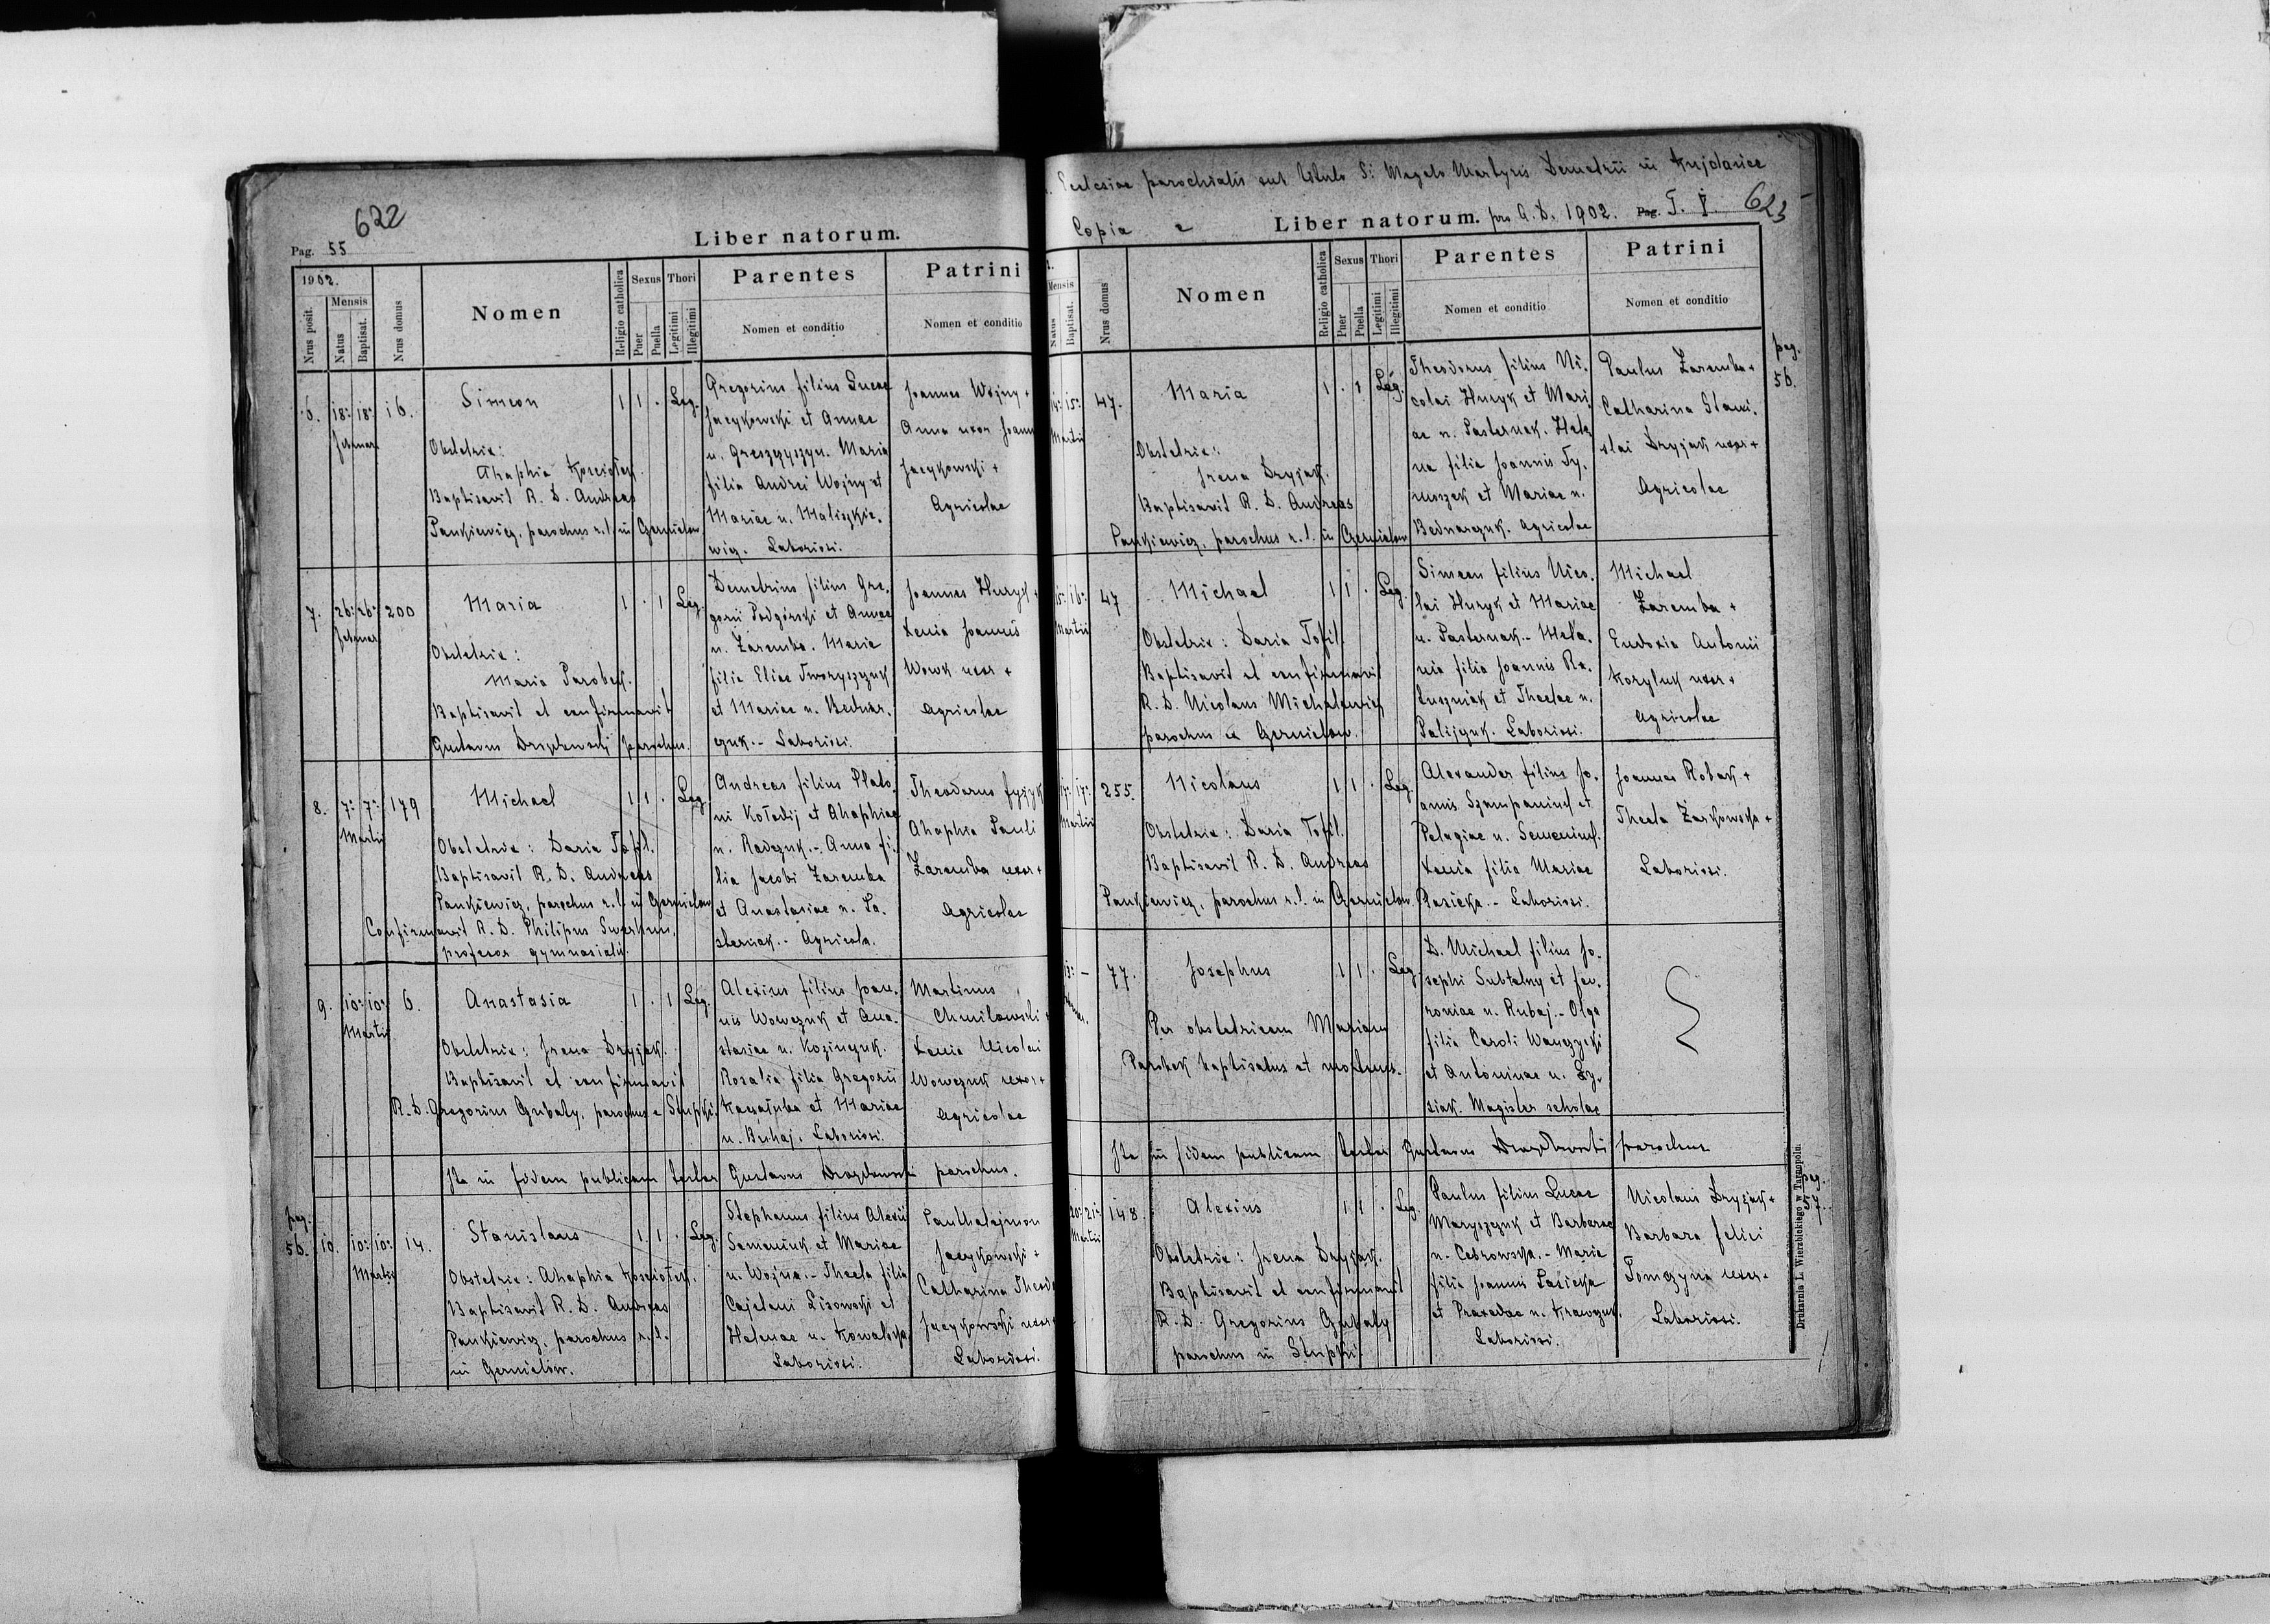 622
Pag. 55
Liber natorum.
1902.
Nrus posit.
Mensis
Natus
Baptisat.
Nrus domus
Nomen
Religio catholica
Sexus
Puer
Puella
Thori
Legitimi
Illegitimi
Parentes
Nomen et conditio
Patrini
Nomen et conditio
6.
18. 18.
16.
Simeon
1 1 . Leg.
Obstetrix:
Ahaphia
Baptisavit R. D. Andreas
Pankiewicz, parochus r. l. in
Gregorius filius Lucae
Jacykowski et Annae
n. Maria
filia Andrei Wojny et
Mariae n. Maliszkie-
wicz. Laboriosi.
Joannes Wojny +
Anna uxor
Jacykowski +
Agricolae
7.
26. 26.
200
Maria
1 . 1 Leg.
Obstetrix:
Maria Parobek.
Baptisavit et confirmavit
Gustavus parochus.
Demetrius filius Gre-
gorii Podgórski et Annae
n. Zaremba. Maria
filia Eliae
et Mariae n. Bednar-
czuk.- Laboriosi.
Joannes Huryk +
Xenia Joannis
Wowk uxor +
Agricolae
8.
7. 7.
Martii
179
Michael
1 1 . Leg.
Obstetrix: Daria Tofil.
Baptisavit R. D. Andreas
Pankiewicz, parochus r. l. in
Confirmavit R. D. Philipus
profesor gymnasialis.
Andreas filius Plato-
ni Kołodij et Ahaphiae
n. Radczuk.- Anna fi-
lia Jacobi Zaremba
et Anastasiae n. Pa-
sternak.- Agricola.
Theodorus
Ahaphia Pauli
Zaremba uxor +
Agricolae
9.
10. 10.
Martii
6.
Anastasia
1 . 1 Leg.
Obstetrix: Irena Dryjak.
Baptisavit et confirmavit
R. D. Gregorius Gubaly, parochus e
Alexius filius Joan-
nis Wowczuk et Ana-
stasiae n.
Rosalia filia Gregorii
et Mariae
n. Buhaj. Laboriosi.
Martinus
Chmilowski +
Xenia Nicolai
Wowczuk uxor +
Agricolae
Ita in fidem publicam testor Gustavus parochus.
pag.
56.
10.
10. 10.
Martii
14.
Stanislaus
1 1 . Leg.
Obstetrix: Ahaphia
Baptisavit R. D. Andreas
Pankiewicz, parochus r. l.
in
Stephanus filius Alexii
Semeniuk et Mariae
n. Wojna.- Thecla filia
Cajetani Lisowski et
Helenae n. Kowalska
Laboriosi.
Panthalejmon
Jacykowski +
Catharina
Jacykowski uxor
Laboriosi.
Ecclesiae parochialis sub titulo S: Megalo Martyris Demetrii in Kujdance
Copia e Liber natorum. pro A. D. 1902. Pag. T. I. 623
Mensis
Natus
Baptisat.
Nrus domus
Nomen
Religio catholica
Sexus
Puer
Puella
Thori
Legitimi
Illegitimi
Parentes
Nomen et conditio
Patrini
Nomen et conditio
pag.
56.
14. 15.
Martii
47.
Maria
1 . 1 Leg.
Obstetrix:
Irena Dryjak.
Baptisavit R. D. Andreas
Pankiewicz, parochus r. l. in
Theodorus filius Ni-
colai Huryk et Mari-
ae n. Pasternak. Hele-
na filia Joannis Ty-
muszek et Mariae n.
Bednarczuk. Agricolae
Paulus Zaremba +
Catharina Stani-
slai Dryjak uxor +
Agricolae
15. 16.
Martii
47
Michael
1 1 . Leg.
Obstetrix: Daria Tofil.
Baptisavit et confirmavit
R. D. Nicolaus Michalewicz
parochus
Simeon filius Nico-
lai Huryk et Mariae
n. Pasternak.- Mela-
nia filia Joannis
et Theclae n.
Palijczuk. Laboriosi.
Michael
Zaremba +
Eudoxia Antonii
Koryluk uxor +
Agricolae
17. 17.
Martii
255.
Nicolaus
1 1 . Leg.
Obstetrix: Daria Tofil.
Baptisavit R. D. Andreas
Pankiewicz, parochus r. l. in
Alexander filius Jo-
annis et
Pelagiae n. Semeniuk.
Xenia filia Mariae
Pasieka.- Laboriosi.
Joannes Robak +
Thecla Zarkowska +
Laboriosi.
77.
Josephus
1 1 . Leg.
Per obstetricem Mariam
Parobek baptisatus et mortuus.
D. Michael filius Jo-
sephi Subtelny et Fev-
roniae n. Rubaj.- Olga
filia Caroli Wanczycki
et Antoninae n.
Magister scholae
Ita in fidem publicam testor Gustavus parochus
pag.
57.
20. 21.
Martii
148.
Alexius
1 1 . Leg.
Obstetrix: Irena Dryjak.
Baptisavit et confirmavit
R. D. Gregorius Gubaly
parochus in
Paulus filius Lucae
Maryszczuk et Barbarae
n. Cebrowska.- Maria
filia Joannis Pasieka
et Praxedae n. Krawczuk.
Laboriosi.
Nicolaus Dryjak +
Barbara Felici
Tomczyna uxor +
Laboriosi.
Drukarnia L. Wierzbickiego w Tarnopolu.